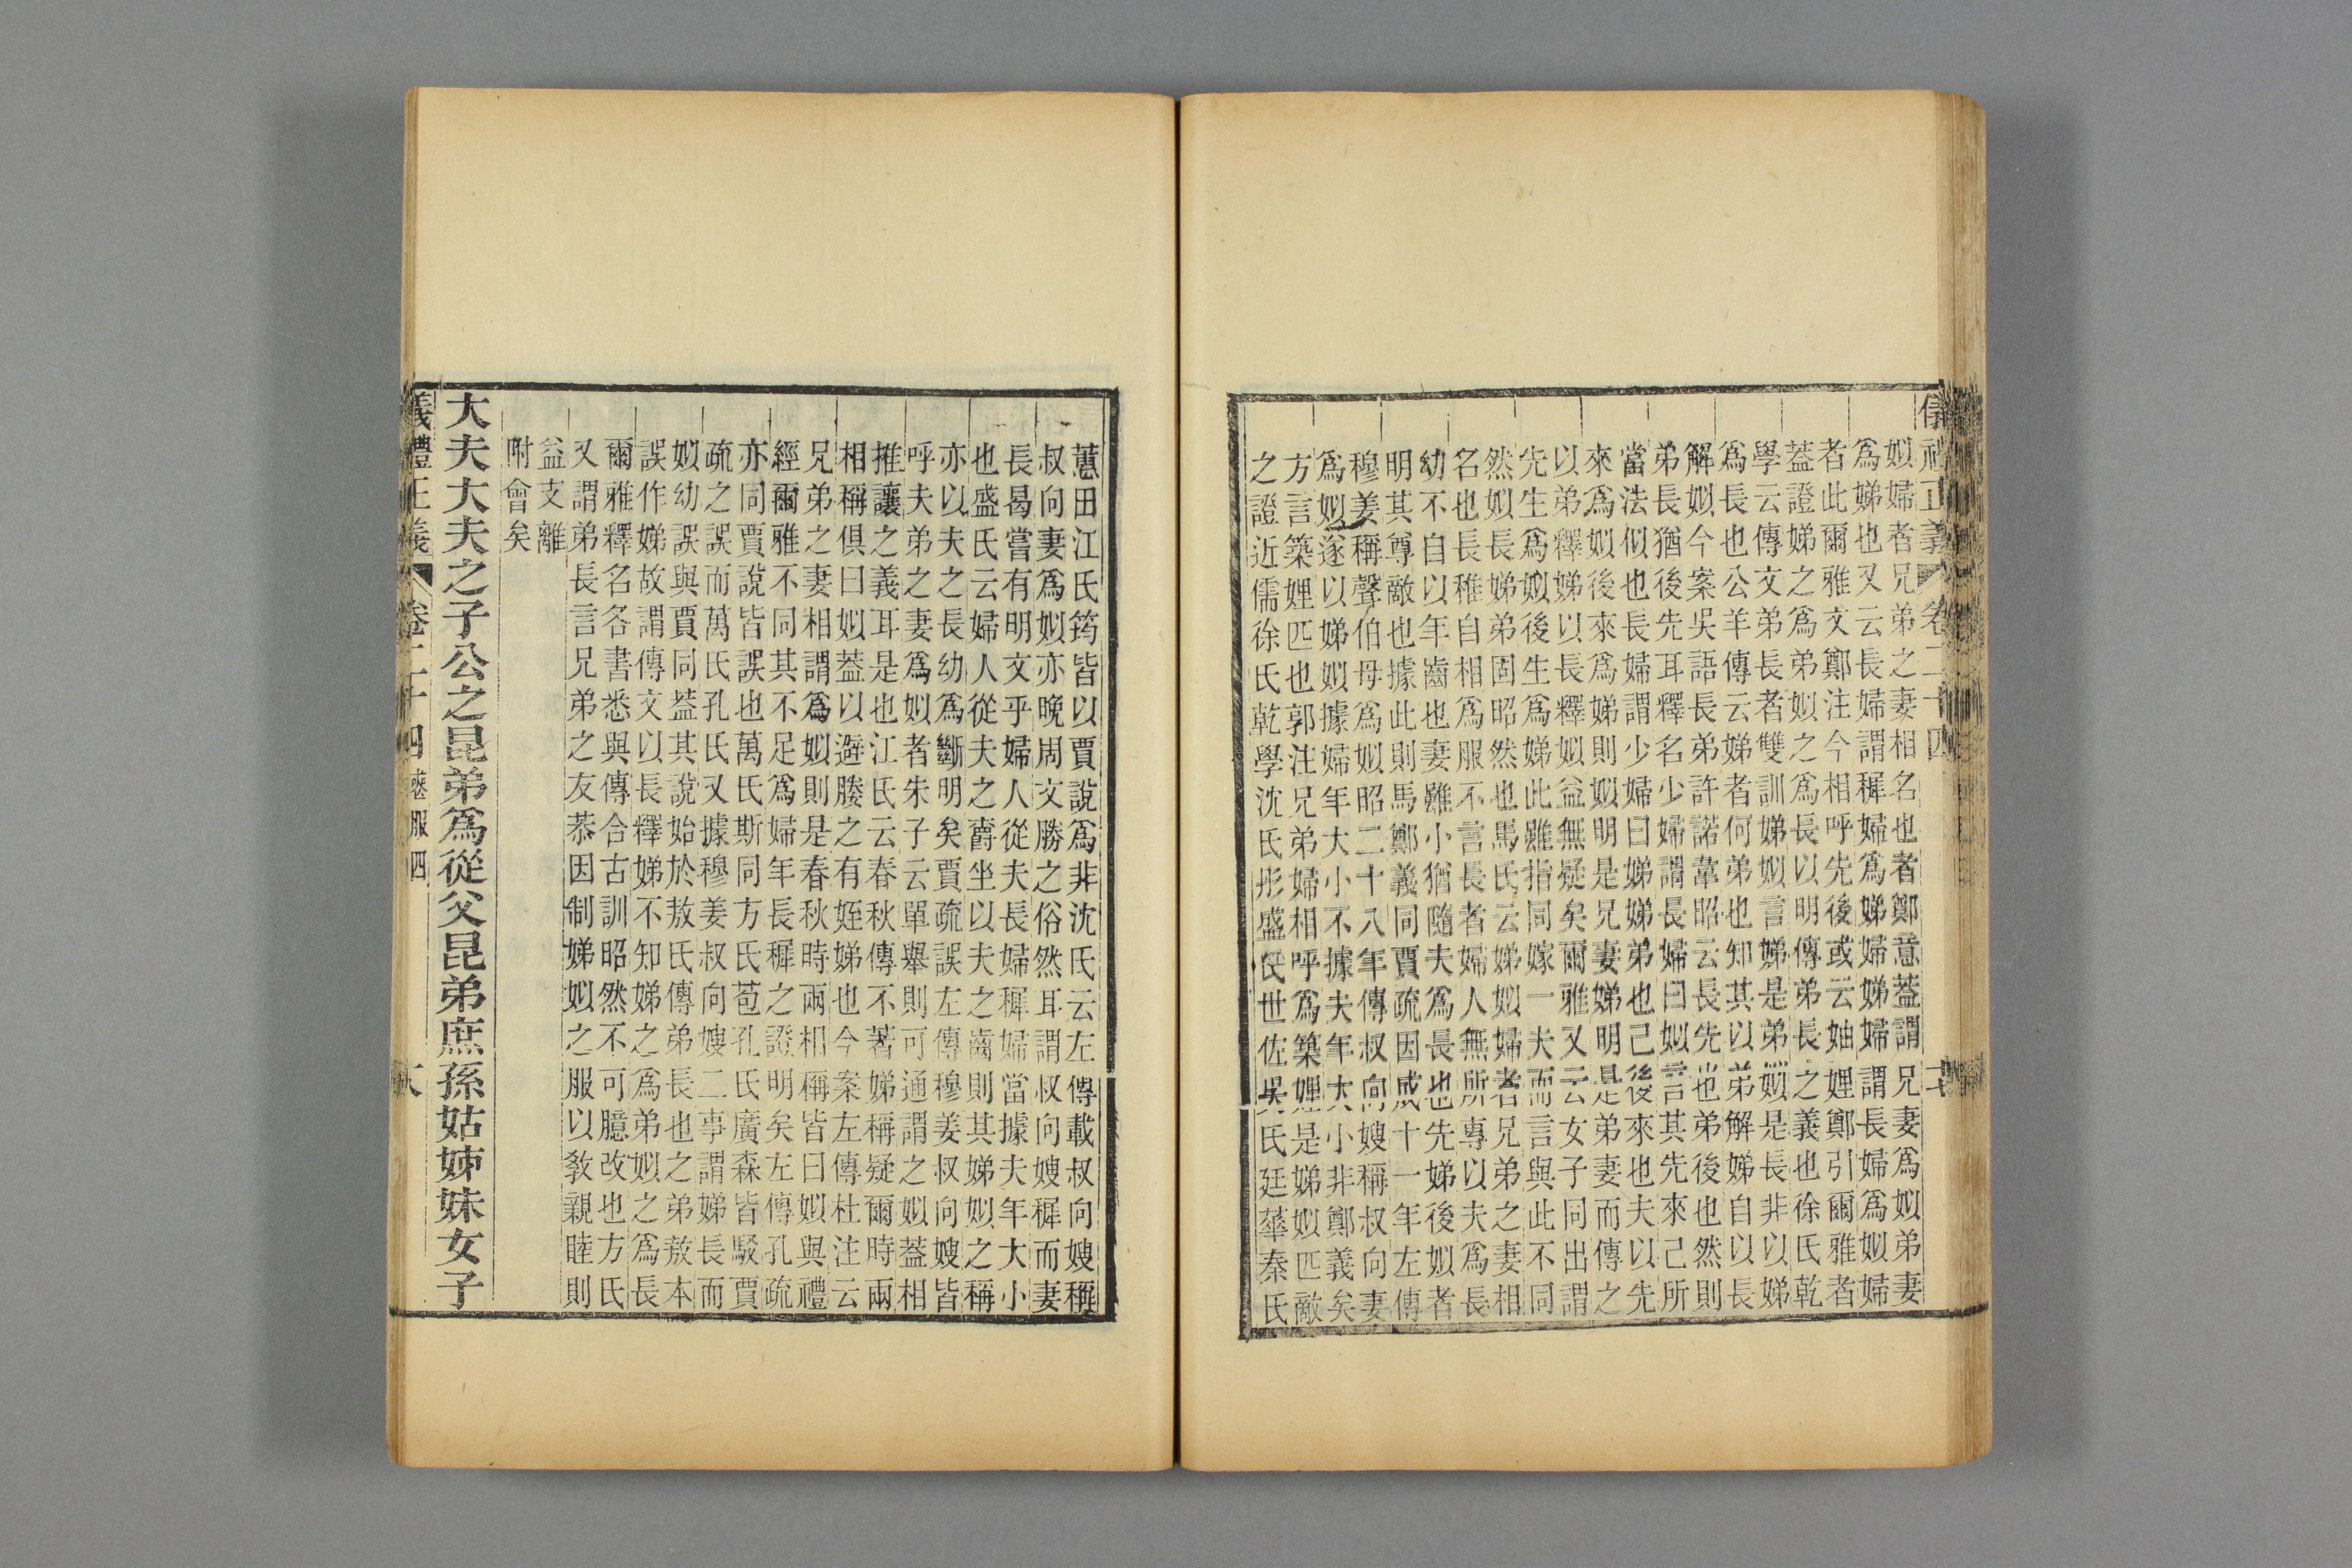 姒婦者兄弟之妻相名也者鄭意蓋謂兄妻爲姒弟妻
爲娣也又云長婦謂穉婦爲娣婦娣婦謂長婦爲姒婦
者此爾雅文鄭注今相呼先後或云妯娌鄭引爾雅者
蓋證娣之爲弟姒之爲長以明傳弟長之義也徐氏乾
學云傳文弟長者雙訓娣姒言娣是弟姒是長非以娣
爲長也公羊傳云娣者何弟也知其以弟解娣自以長
解姒今案吳語長弟許諾韋昭云長先也弟後也然則
弟長猶後先耳釋名少婦謂長婦曰姒言其先來己所
當法似也長婦謂少婦曰娣娣弟也己後來也夫以先
來爲姒後來爲娣則姒明是兄妻娣明是弟妻而傳之
以弟釋娣以長釋姒益無疑矣爾雅又云女子同出謂
先生爲姒後生爲娣此雖指同嫁一夫而言與此不同
然姒長娣弟固昭然也馬氏云娣姒婦者兄弟之妻相
名也長稚自相爲服不言長者婦人無所專以夫爲長
幼不自以年齒也妻雖小猶隨夫爲長也先娣後姒者
明其尊敵也據此則馬鄭義同賈疏因成十一年左傳
穆姜稱聲伯母爲姒昭二十八年傳叔向嫂稱叔向妻
爲姒遂以娣姒據婦年大小不據夫年大小非鄭義矣
方言築娌匹也郭注兄弟婦相呼爲築娌是娣姒匹敵
之證近儒徐氏乾學沈氏彤盛氏世佐吳氏廷華秦氏
蕙田江氏筠皆以賈說爲非沈氏云左傳載叔向嫂稱
叔向妻爲姒亦晚周文勝之俗然耳謂叔向嫂穉而妻
長曷嘗有明文乎婦人從夫長婦穉婦當據夫年大小
也盛氏云婦人從夫之齒坐以夫之齒則其娣姒之稱
亦以夫之長幼爲斷明矣賈疏誤左傳穆姜叔向嫂皆
呼夫弟之妻爲姒者朱子云單舉則可通謂之姒蓋相
推讓之義耳是也江氏云春秋傳不著娣稱疑爾時兩
相稱俱曰姒蓋以避媵之有姪娣也今案左傳杜注云
兄弟之妻相謂爲姒則是春秋時兩相稱皆曰姒與禮
經爾雅不同其不足爲婦年長穉之證明矣左傳孔疏
亦同賈說皆誤也萬氏斯同方氏苞孔氏廣森皆駁賈
疏之誤而萬氏孔氏又據穆姜叔向嫂二事謂娣長而
姒幼誤與賈同蓋其說始於敖氏傳弟長也之弟敖本
誤作娣故謂傳文以長釋娣不知娣之爲弟姒之爲長
爾雅釋名各書悉與傳合古訓昭然不可臆改也方氏
又謂弟長言兄弟之友恭因制娣姒之服以敎親睦則
益支離
附會矣
大夫大夫之子公之昆弟爲從父昆弟庶孫姑姊妹女子